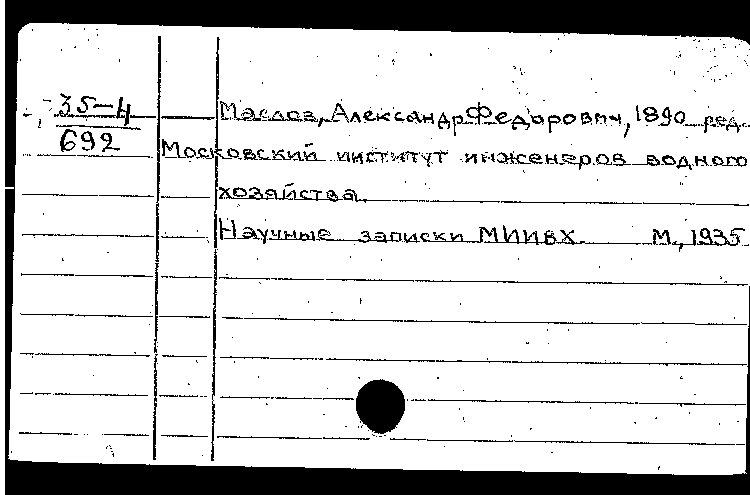 35-4
692
Маслов, Александр Федорович, 1890 ред.
Московский институт инженеров водного
хозяйства.
Научные записки МИИВХ. М., 1935